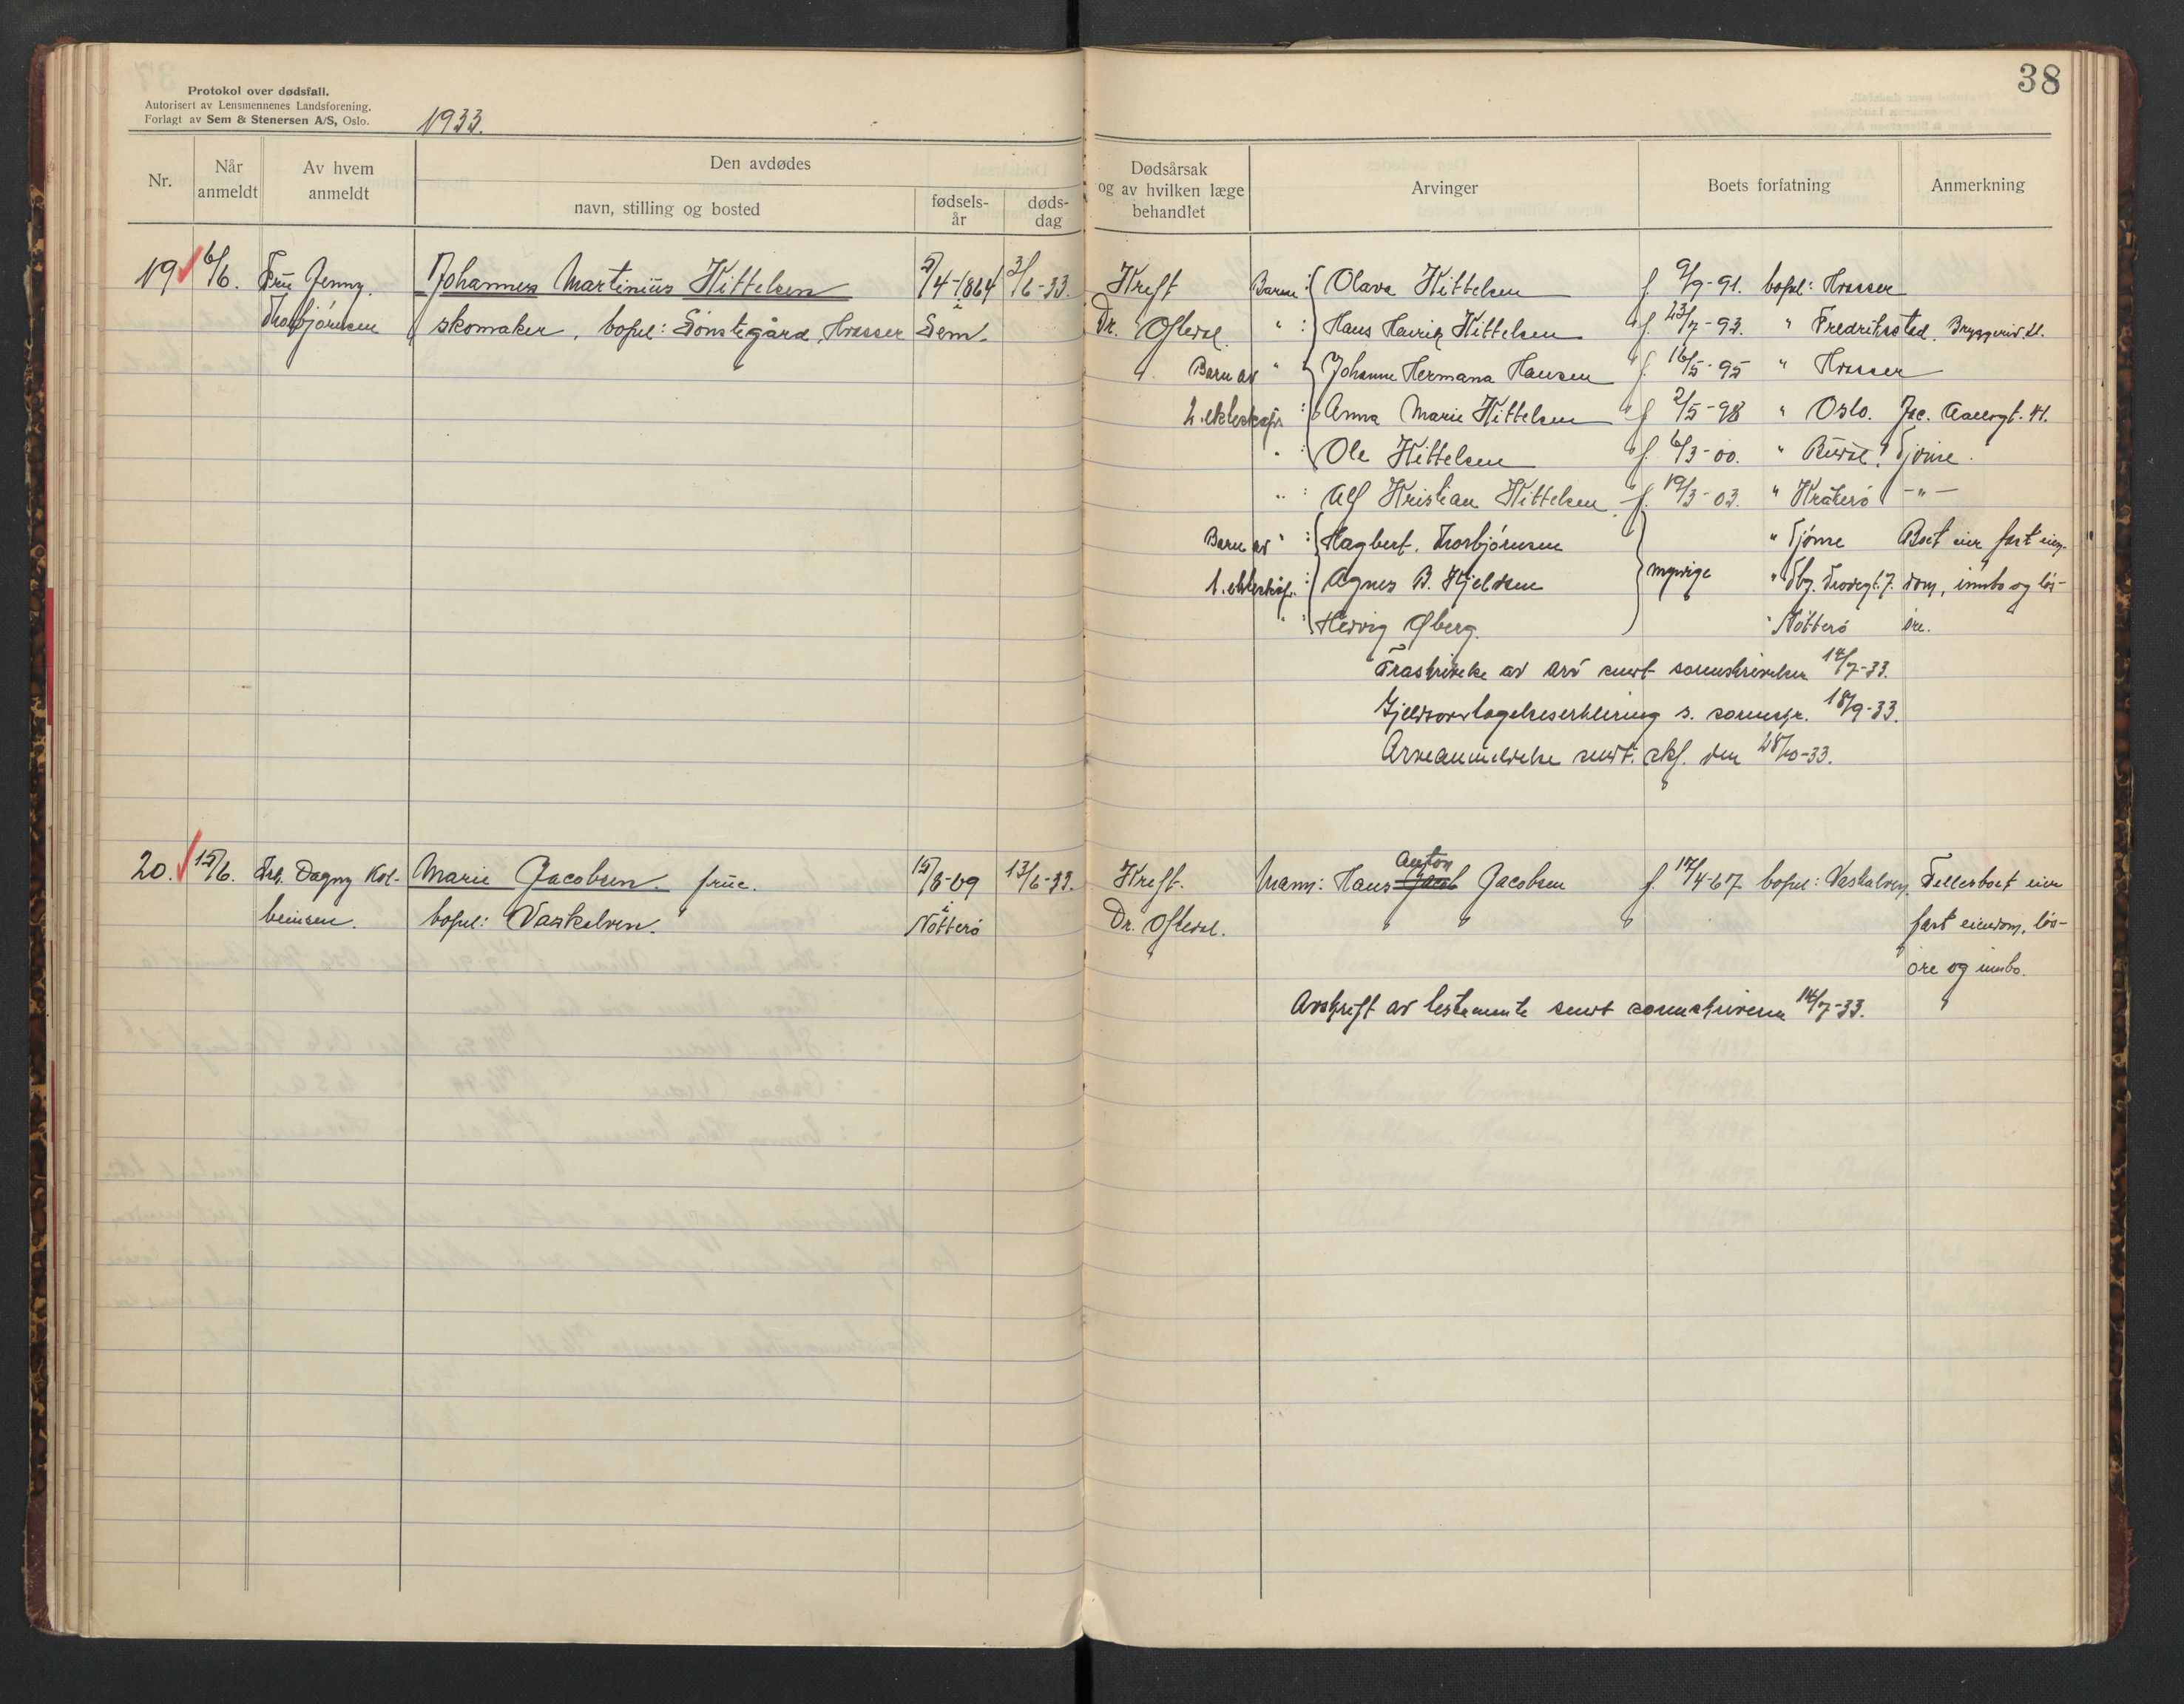 38
Protokol over dødsfall.
Autorisert av Lensmennenes Landsforening.
Forlagt av Sem & Stenersen A/S, Oslo.
1933.
Nr.
Når anmeldt
Av hvem anmeldt
Den avdødes
navn, stilling og bosted
fødsels-år
døds-dag
Dødsårsak og av hvilken læge behandlet
Arvinger
Boets forfatning
Anmerkning
19 6/6. Frü Jenny Johannes Martiniüs Kittelsen 5/4-1864 3/6-33. Kreft Barn: Olava Kittelsen f. 9/9-91. bopel: Hvasser
Thorbjørnsen skomaker, bopel: Sønstegård, Hvasser i Sem. Dr. Oftedal. " : Hans Henrik Kittelsen " f. 23/7-93. " Fredrikstad.
Barn av " Johanne Hermana Hansen " f. 16/5-95 " Hvasser
2. ekteskap. : Anna Marie Kittelsen " f. 2/5-98 " Oslo. Jac. Aallsgt. 41.
" : Ole Kittelsen " f. 6/3-00. " Tjøme.
" : Alf Kristian Kittelsen " f. 19/3-03. " Kråkerø -"-
Barn av " : Hagbert. Thorbjørnsen " Tjøme Boet eier fast eien-
1. ekteskap. : Agnes B. Kjeldsen myndige " Tbg. dom, innbo og løs-
" : Hedvig Øberg. " Nøtterø øre.
Fraskrivelse av arv sendt sorenskriveren 14/7-33.
Gjeldsovertagelseserklæring s. sorenskr. 18/9-33.
Arveanmeldelse sendt. skf. den 28/10-33.
20. 15/6. Frk. Dagny Kol- Marie Jacobsen. früe. 15/8-69 13/6-33. Kreft. Mann: Hans Jacob Anton Jacobsen f. 17/4-67 bopel: Vaskalven. Fellesboet eier
beinsen. bopel: Vaskalven. i Nøtterø Dr. Oftedal. " " " fast eiendom, løs-
øre og innbo.
Avskrift av testamente sendt sorenskriveren 14/7-33. "